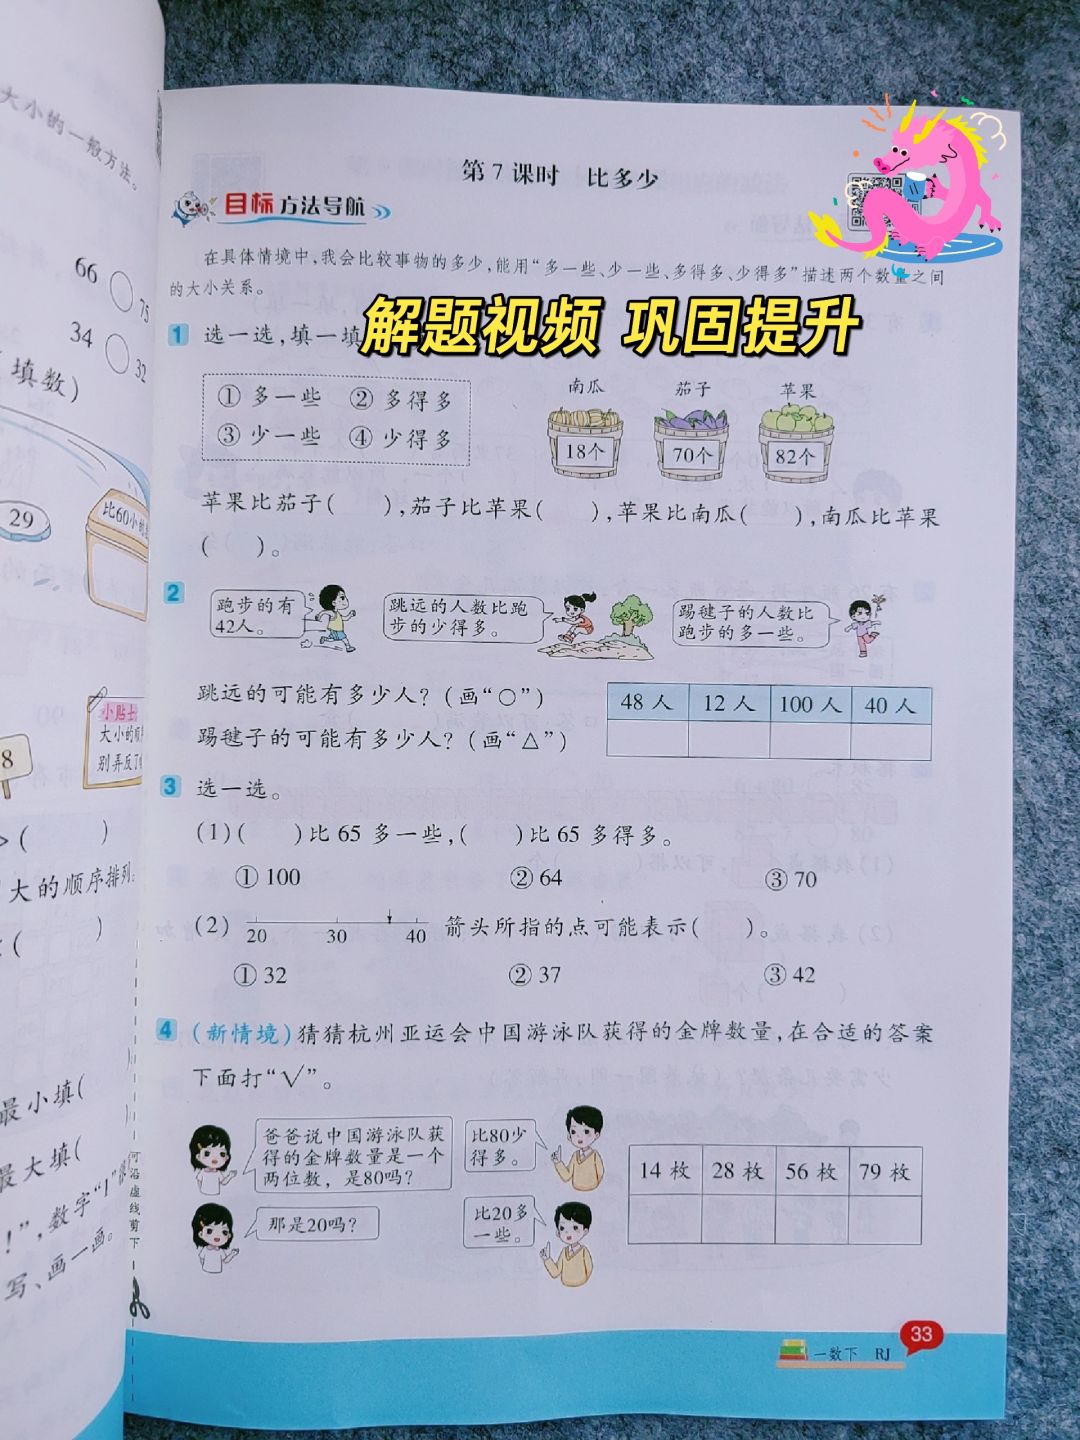 大小的一般方法。
66 ○ 75
34 ○ 32
填数)
29
比60小
8
小贴士
大小的
别弄反了
>(　　)
大的顺序排列:
(　　)
最小填(
最大填(
!”,数字“1”
写、画一画。
可沿虚线剪下
第 7 课时　比多少
目标 方法导航
在具体情境中,我会比较事物的多少,能用“多一些、少一些、多得多、少得多”描述两个数量之间
的大小关系。
解题视频 巩固提升
1 选一选,填一填
① 多一些　② 多得多
③ 少一些　④ 少得多
南瓜　茄子　苹果
18个　70个　82个
苹果比茄子(　　),茄子比苹果(　　),苹果比南瓜(　　),南瓜比苹果
(　　)。
2
跑步的有
42人。
跳远的人数比跑
步的少得多。
踢毽子的人数比
跑步的多一些。
跳远的可能有多少人?(画“○”)
踢毽子的可能有多少人?(画“△”)
48 人　12 人　100 人　40 人
3 选一选。
(1)(　　)比 65 多一些,(　　)比 65 多得多。
① 100　② 64　③ 70
(2) 20　30　40 箭头所指的点可能表示(　　)。
① 32　② 37　③ 42
4 (新情境)猜猜杭州亚运会中国游泳队获得的金牌数量,在合适的答案
下面打“√”。
爸爸说中国游泳队获
得的金牌数量是一个
两位数，是80吗?
比80少
得多。
那是20吗?
比20多
一些。
14 枚　28 枚　56 枚　79 枚
33
一数下　RJ